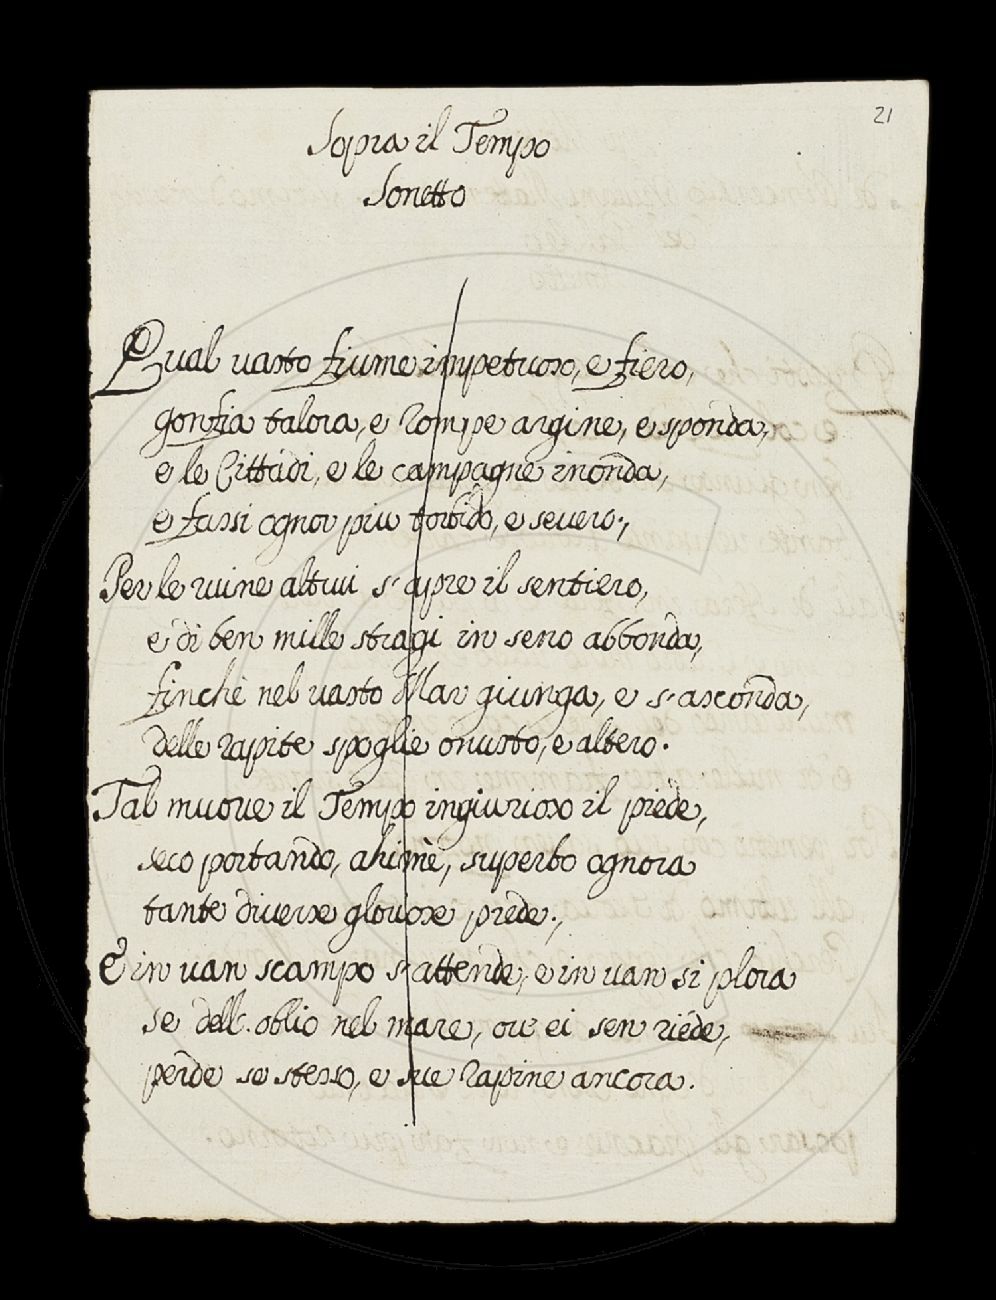 21
Sopra il Tempo
Sonetto
Qual uasto fiume impetuoso, e fiero,
gonfia talora, e rompe argine, e sponda,
e le Cittàdi, e le campagne inonda,
e fassi ognor piu torbido, e seuero;
Per le ruine altrui s'apre il sentiero,
e di ben mille stragi in seno abbonda,
finchè nel uasto Mar giunga, e s'asconda,
delle rapite spoglie onusto, e altero.
Tal muoue il Tempo ingiurioso il piede,
seco portando, ahimè, superbo ognora
tante diuerse gloriose prede;
E in uan scampo s'attende, e in uan si plora
se dell'oblio nel mare, ou' ei sen riede,
perde se stesso, e sue rapine ancora.